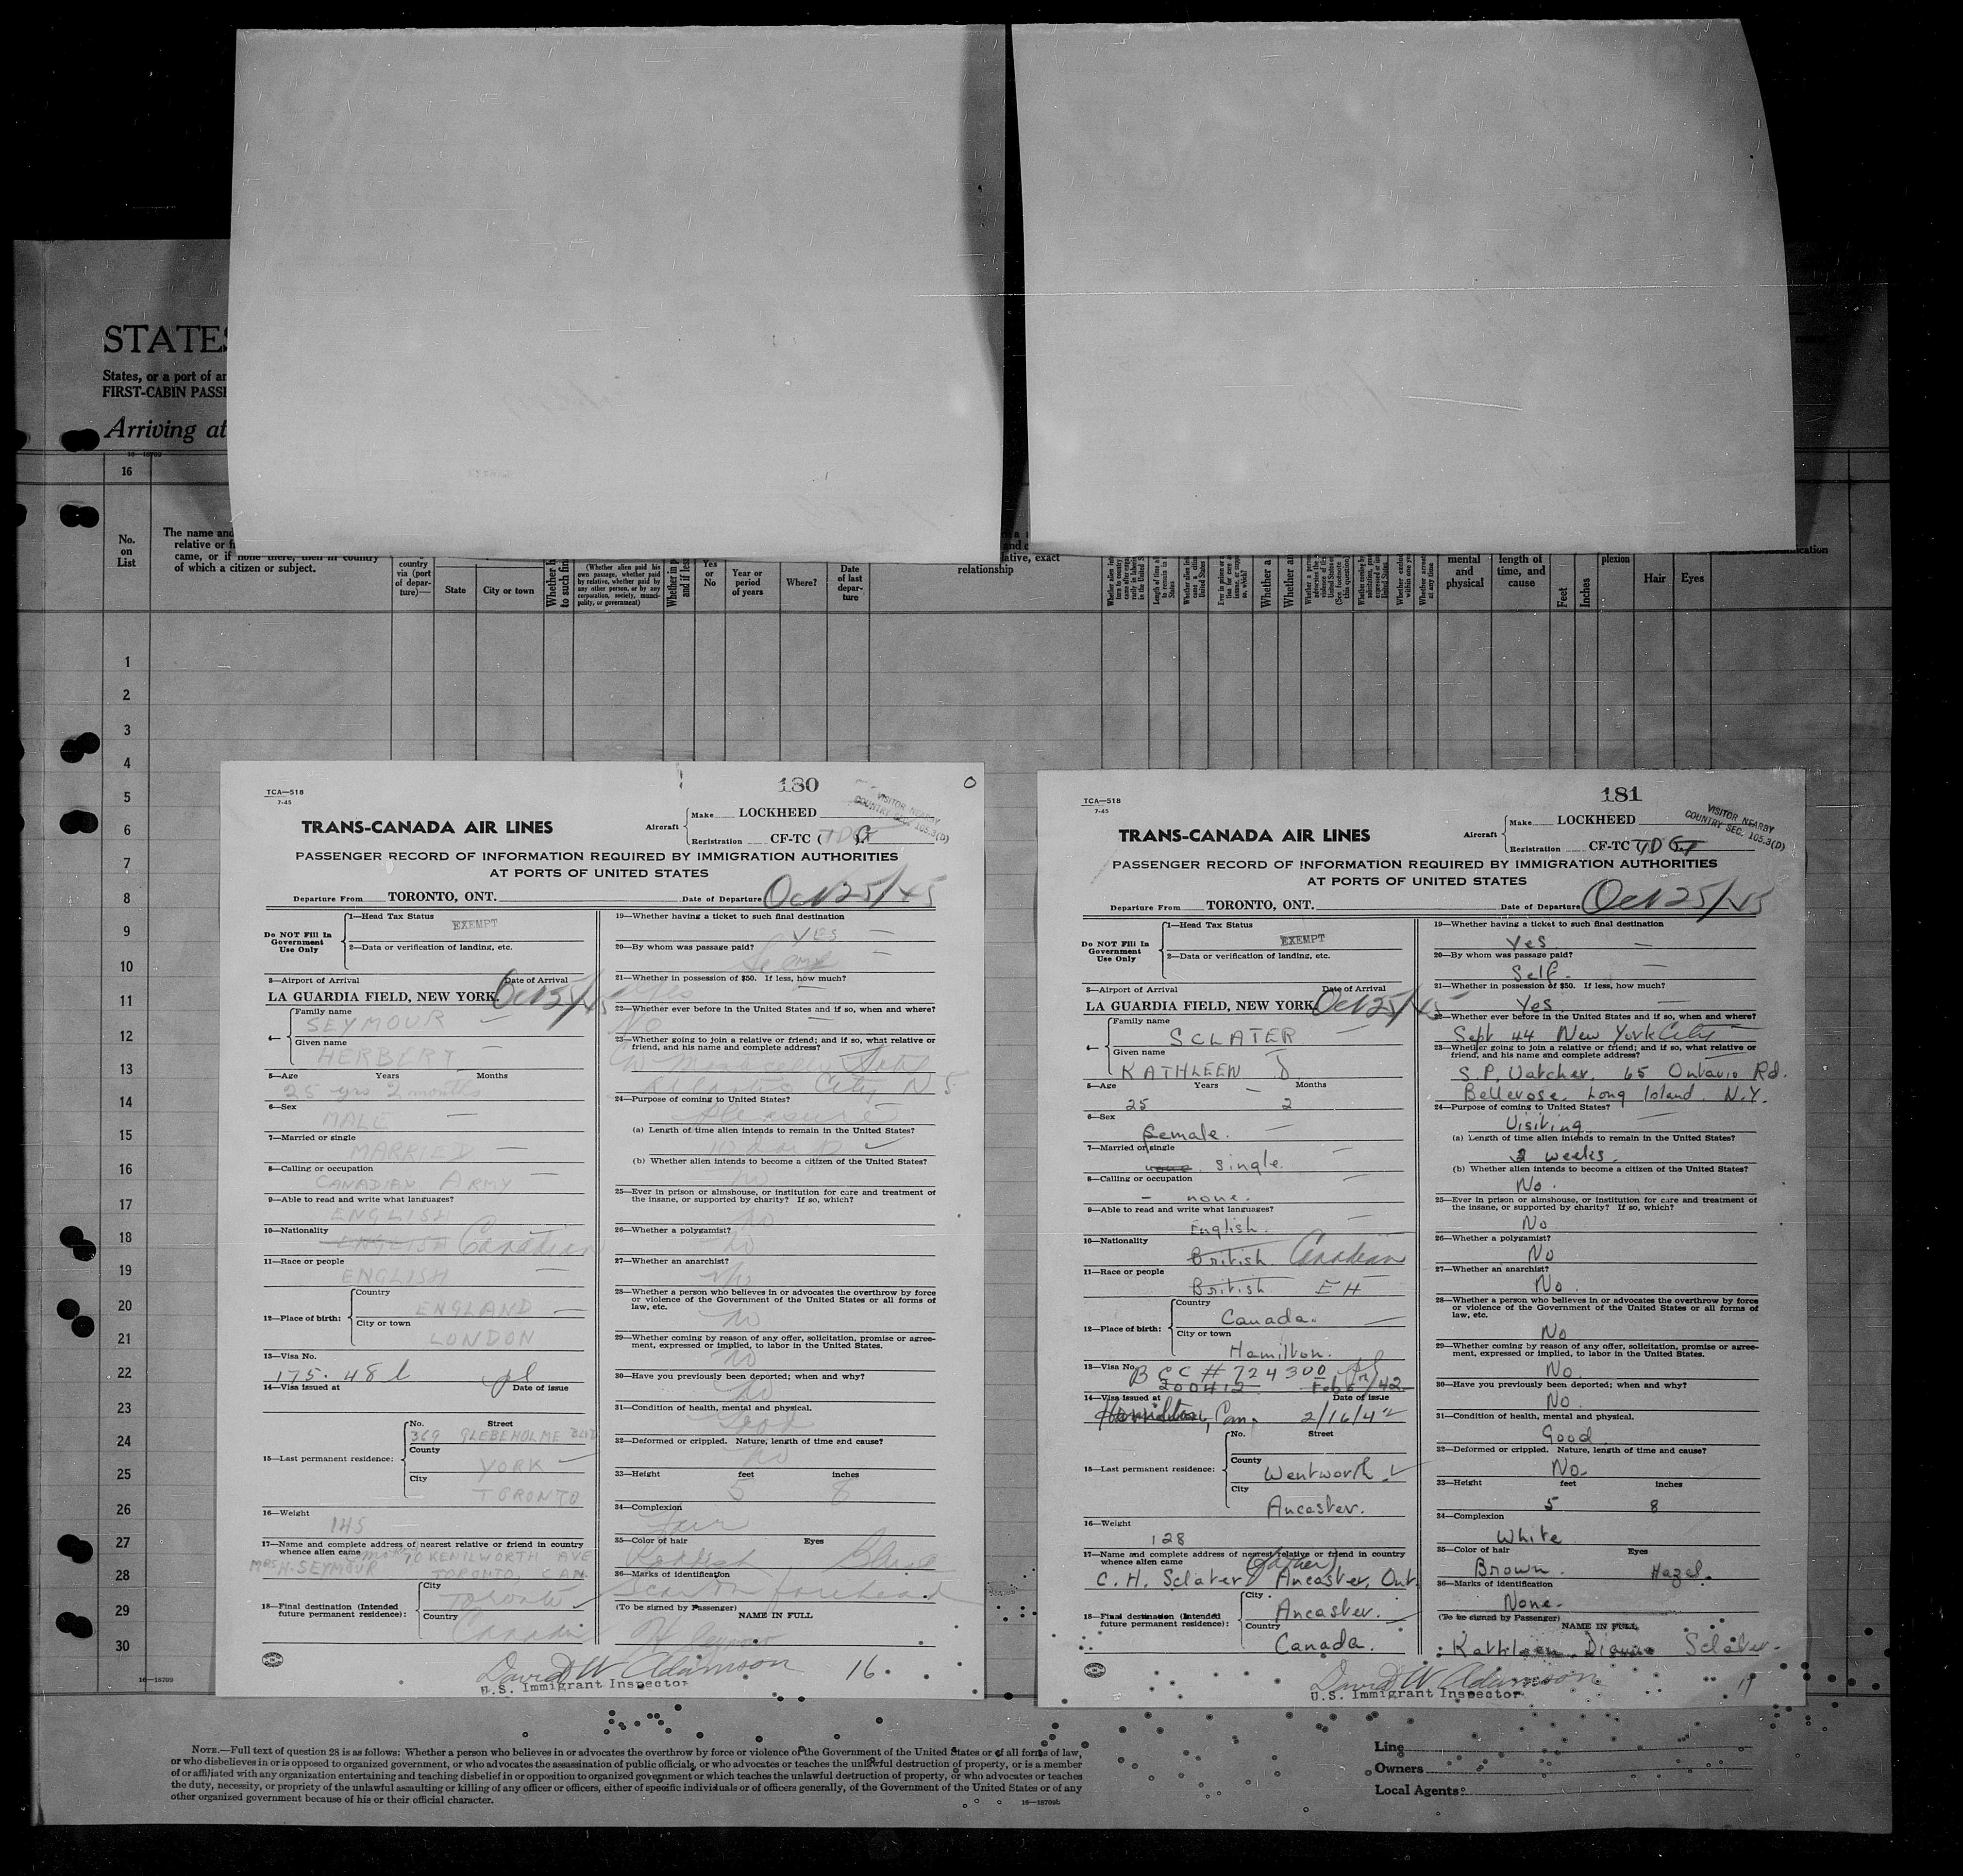 STATES
States, or a port of
FIRST-CABIN
Arriving at
16—18709
16
No.
on
List
The name and
relative or
came, or if none there, then in country
of which a citizen or subject.
country
via (port
of depar-
ture)—
State
City or town
Whether
to such
(Whether alien paid his
own passage, whether paid
by relative, whether paid by
any other person, or by any
corporation, society, munici-
pality, or government)
Yes
or
No
Year or
period
of years
Where?
Date
of last
depar-
ture
relative, exact
relationship
mental
and
physical
length of
time, and
cause
Feet
Inches
plexion
Hair
Eyes
1
2
3
4
5
6
7
8
9
10
11
12
13
14
15
16
17
18
19
20
21
22
23
24
25
26
27
28
29
30
16—18709
180
TCA—518
7-45
TRANS-CANADA AIR LINES
Aircraft
Make LOCKHEED
Registration CF-TC (TDG)
VISITOR NEARBY
COUNTRY SEC. 105.3(D)
PASSENGER RECORD OF INFORMATION REQUIRED BY IMMIGRATION AUTHORITIES
AT PORTS OF UNITED STATES
Departure From TORONTO, ONT. Date of Departure Oct 25/45
Do NOT Fill In
Government
Use Only
1—Head Tax Status
EXEMPT
2—Data or verification of landing, etc.
3—Airport of Arrival Date of Arrival
LA GUARDIA FIELD, NEW YORK. Oct 25/45
4—
Family name
SEYMOUR
Given name
HERBERT
5—Age Years Months
25 yrs 2 months
6—Sex
MALE
7—Married or single
MARRIED
8—Calling or occupation
CANADIAN ARMY
9—Able to read and write what languages?
ENGLISH
10—Nationality
ENGLISH Canadian
11—Race or people
ENGLISH
12—Place of birth:
Country
ENGLAND
City or town
LONDON
13—Visa No.
175.48 l
14—Visa issued at Date of issue
15—Last permanent residence:
No. Street
369 GLEBEHOLME BLVD
County
YORK
City
TORONTO
16—Weight
145
17—Name and complete address of nearest relative or friend in country
whence alien came
70 KENILWORTH AVE
MRS H. SEYMOUR TORONTO, CAN.
18—Final destination (Intended
future permanent residence):
City
Toronto
Country
Canada
19—Whether having a ticket to such final destination
YES
20—By whom was passage paid?
Self
21—Whether in possession of $50. If less, how much?
Yes
22—Whether ever before in the United States and if so, when and where?
NO
23—Whether going to join a relative or friend; and if so, what relative or
friend, and his name and complete address?
Atlantic City N J
24—Purpose of coming to United States?
Pleasure
(a) Length of time alien intends to remain in the United States?
10 days
(b) Whether alien intends to become a citizen of the United States?
no
25—Ever in prison or almshouse, or institution for care and treatment of
the insane, or supported by charity? If so, which?
no
26—Whether a polygamist?
no
27—Whether an anarchist?
No
28—Whether a person who believes in or advocates the overthrow by force
or violence of the Government of the United States or all forms of
law, etc.
no
29—Whether coming by reason of any offer, solicitation, promise or agree-
ment, expressed or implied, to labor in the United States.
no
30—Have you previously been deported; when and why?
no
31—Condition of health, mental and physical.
Good
32—Deformed or crippled. Nature, length of time and cause?
no
33—Height feet inches
5 8
34—Complexion
Fair
35—Color of hair Eyes
Reddish Blue
36—Marks of identification
Scar on forehead
(To be signed by Passenger) NAME IN FULL
H Seymour
David W. Adamson 16.
U.S. Immigrant Inspector
181
TCA—518
7-45
TRANS-CANADA AIR LINES
Aircraft
Make LOCKHEED
Registration CF-TC TDG
VISITOR NEARBY
COUNTRY SEC. 105.3(D)
PASSENGER RECORD OF INFORMATION REQUIRED BY IMMIGRATION AUTHORITIES
AT PORTS OF UNITED STATES
Departure From TORONTO, ONT. Date of Departure Oct 25/45
Do NOT Fill In
Government
Use Only
1—Head Tax Status
EXEMPT
2—Data or verification of landing, etc.
3—Airport of Arrival Date of Arrival
LA GUARDIA FIELD, NEW YORK. Oct 25/45
4—
Family name
SCLATER
Given name
KATHLEEN D.
5—Age Years Months
25 2
6—Sex
Female.
7—Married or single
none. single.
8—Calling or occupation
- none.
9—Able to read and write what languages?
English.
10—Nationality
British. Canadian
11—Race or people
British. EH
12—Place of birth:
Country
Canada.
City or town
Hamilton.
13—Visa No.
BCC # 724300
200412 Feb 6/42
14—Visa issued at Date of issue
Hamilton, Can, 2/16/42
15—Last permanent residence:
No. Street
County
Wentworth.
City
Ancaster.
16—Weight
128
17—Name and complete address of nearest relative or friend in country
whence alien came
(father)
C. H. Sclater, Ancaster, Ont.
18—Final destination (Intended
future permanent residence):
City
Ancaster.
Country
Canada.
19—Whether having a ticket to such final destination
Yes.
20—By whom was passage paid?
Self.
21—Whether in possession of $50. If less, how much?
Yes
22—Whether ever before in the United States and if so, when and where?
Sept 44 New York City
23—Whether going to join a relative or friend; and if so, what relative or
friend, and his name and complete address?
S.P. Vatcher, 65 Ontario Rd.
Bellerose, Long Island. N.Y.
24—Purpose of coming to United States?
Visiting
(a) Length of time alien intends to remain in the United States?
2 weeks.
(b) Whether alien intends to become a citizen of the United States?
No.
25—Ever in prison or almshouse, or institution for care and treatment of
the insane, or supported by charity? If so, which?
No
26—Whether a polygamist?
No
27—Whether an anarchist?
No.
28—Whether a person who believes in or advocates the overthrow by force
or violence of the Government of the United States or all forms of
law, etc.
No
29—Whether coming by reason of any offer, solicitation, promise or agree-
ment, expressed or implied, to labor in the United States.
No.
30—Have you previously been deported; when and why?
No
31—Condition of health, mental and physical.
Good
32—Deformed or crippled. Nature, length of time and cause?
No.
33—Height feet inches
5 8
34—Complexion
White
35—Color of hair Eyes
Brown. Hazel.
36—Marks of identification
None.
(To be signed by Passenger) NAME IN FULL
Kathleen Diana Sclater.
David W. Adamson 17
U.S. Immigrant Inspector
NOTE.—Full text of question 28 is as follows: Whether a person who believes in or advocates the overthrow by force or violence of the Government of the United States or of all forms of law,
or who disbelieves in or is opposed to organized government, or who advocates the assassination of public officials, or who advocates or teaches the unlawful destruction of property, or is a member
of or affiliated with any organization entertaining and teaching disbelief in or opposition to organized government or which teaches the unlawful destruction of property, or who advocates or teaches
the duty, necessity, or propriety of the unlawful assaulting or killing of any officer or officers, either of specific individuals or of officers generally, of the Government of the United States or of any
other organized government because of his or their official character.
16—18709b
Line
Owners
Local Agents